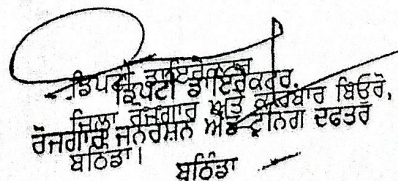 ਡਿਪਟੀ ਡਾਇਰੈਕਟਰ
ਡਿਪਟੀ ਡਾਇਰੈਕਟਰ,
ਜਿਲਾ ਰੋਜਗਾਰ ਅਤੇ ਕਾਰੋਬਾਰ ਬਿਓਰੋ,
ਰੋਜਗਾਰ ਜਨਰੇਸ਼ਨ ਐਂਡ ਟ੍ਰੇਨਿੰਗ ਦਫਤਰ
ਬਠਿੰਡਾ।
ਬਠਿੰਡਾ